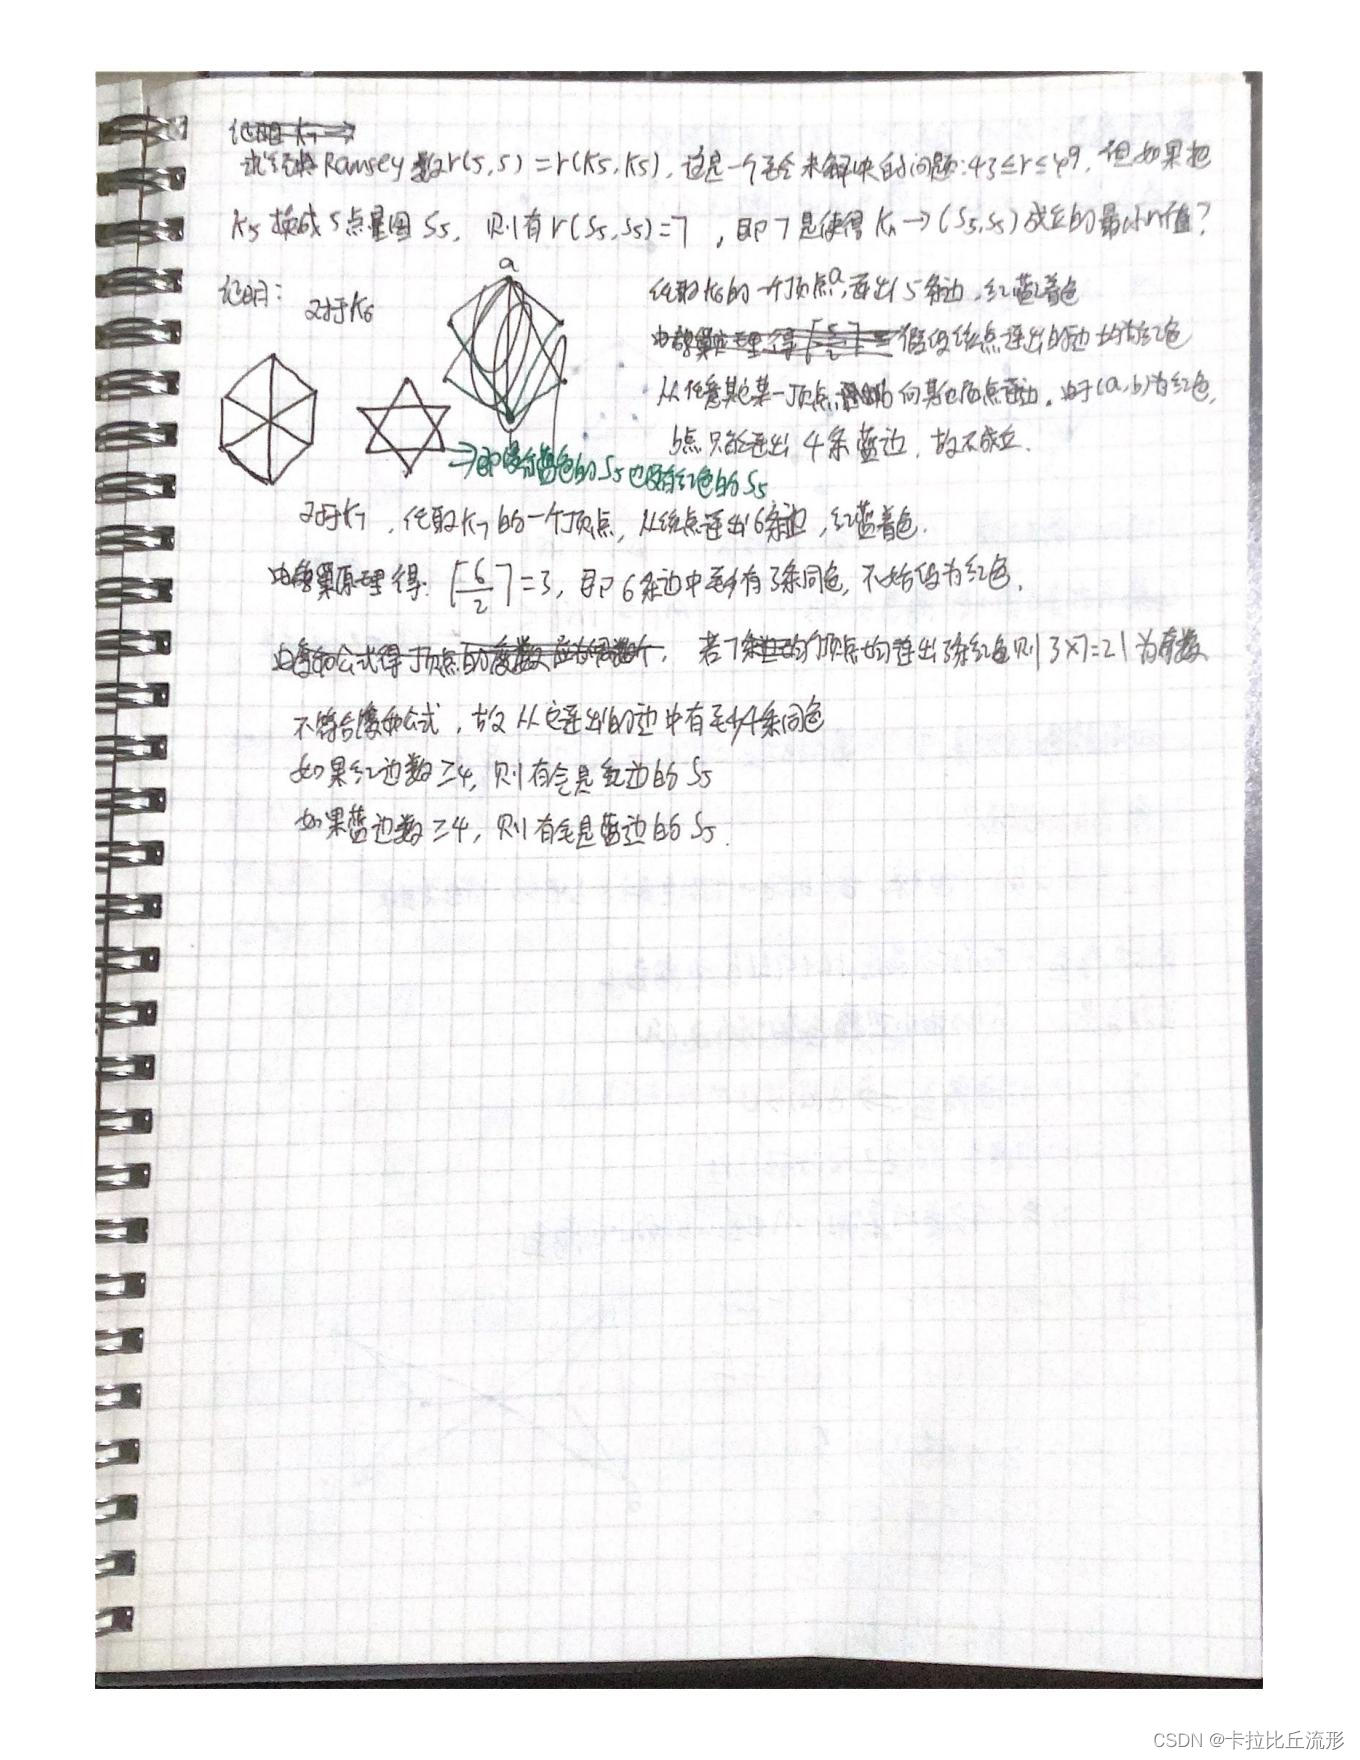 试经典Ramsey数r(5,5)=r(K5,K5),这是一个至今未解决的问题:43≤r≤49,但如果把
K5换成5点星图S5,则有r(S5,S5)=7,即7是使得Kn→(S5,S5)成立的最小n值?
证明: 对于K6
a
任取K6的一个顶点a,连出5条边,红蓝着色
由鸽巢原理得⌈5/2⌉= 假设终点连出的边均为红色
从任意其它某一顶点 向其它顶点连边,由于(a,b)为红色,
b点只能连出4条蓝边,故不成立.
→即没有蓝色的S5也没有红色的S5
对于K7,任取K7的一个顶点,从终点连出6条边,红蓝着色.
由鸽巢原理得:⌈6/2⌉=3,即6条边中至少有3条同色,不妨设为红色.
由度和公式得顶点的度数应为偶数个,若7个顶点均连出3条红色则3×7=21为奇数
不符合度和公式,故从它连出的边中有至少4条同色
如果红边数≥4,则有全是红边的S5
如果蓝边数≥4,则有全是蓝边的S5.
CSDN @卡拉比丘流形